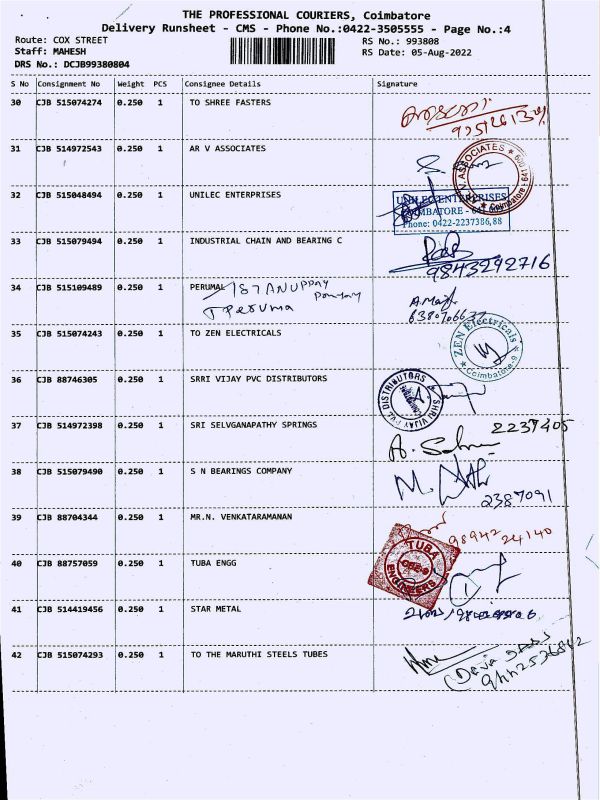 THE PROFESSIONAL COURIERS, Coimbatore
Delivery Runsheet - CMS - Phone No.:0422-3505555 - Page No.:4
Route: COX STREET
RS No.: 993808
Staff: MAHESH
RS Date: 05-Aug-2022
DRS No.: DCJB99380804
S No Consignment No Weight PCS Consignee Details Signature
30 CJB 515074274 0.250 1 TO SHREE FASTERS
31 CJB 514972543 0.250 1 AR V ASSOCIATES
V ASSOCIATES
32 CJB 515048494 0.250 1 UNILEC ENTERPRISES
UNILEC ENTERPRISES
COIMBATORE
Phone: 0422-2237386,88
33 CJB 515079494 0.250 1 INDUSTRIAL CHAIN AND BEARING C
9843292716
34 CJB 515109489 0.250 1 PERUMAL
35 CJB 515074243 0.250 1 TO ZEN ELECTRICALS
ZEN Electricals
Coimbatore-9
36 CJB 88746305 0.250 1 SRRI VIJAY PVC DISTRIBUTORS
SHRI VIJAY PVC DISTRIBUTORS
37 CJB 514972398 0.250 1 SRI SELVGANAPATHY SPRINGS
2237405
38 CJB 515079490 0.250 1 S N BEARINGS COMPANY
2387091
39 CJB 88704344 0.250 1 MR.N. VENKATARAMANAN
98942 24140
40 CJB 88757059 0.250 1 TUBA ENGG
TUBA
ENGINEERS
41 CJB 514419456 0.250 1 STAR METAL
42 CJB 515074293 0.250 1 TO THE MARUTHI STEELS TUBES